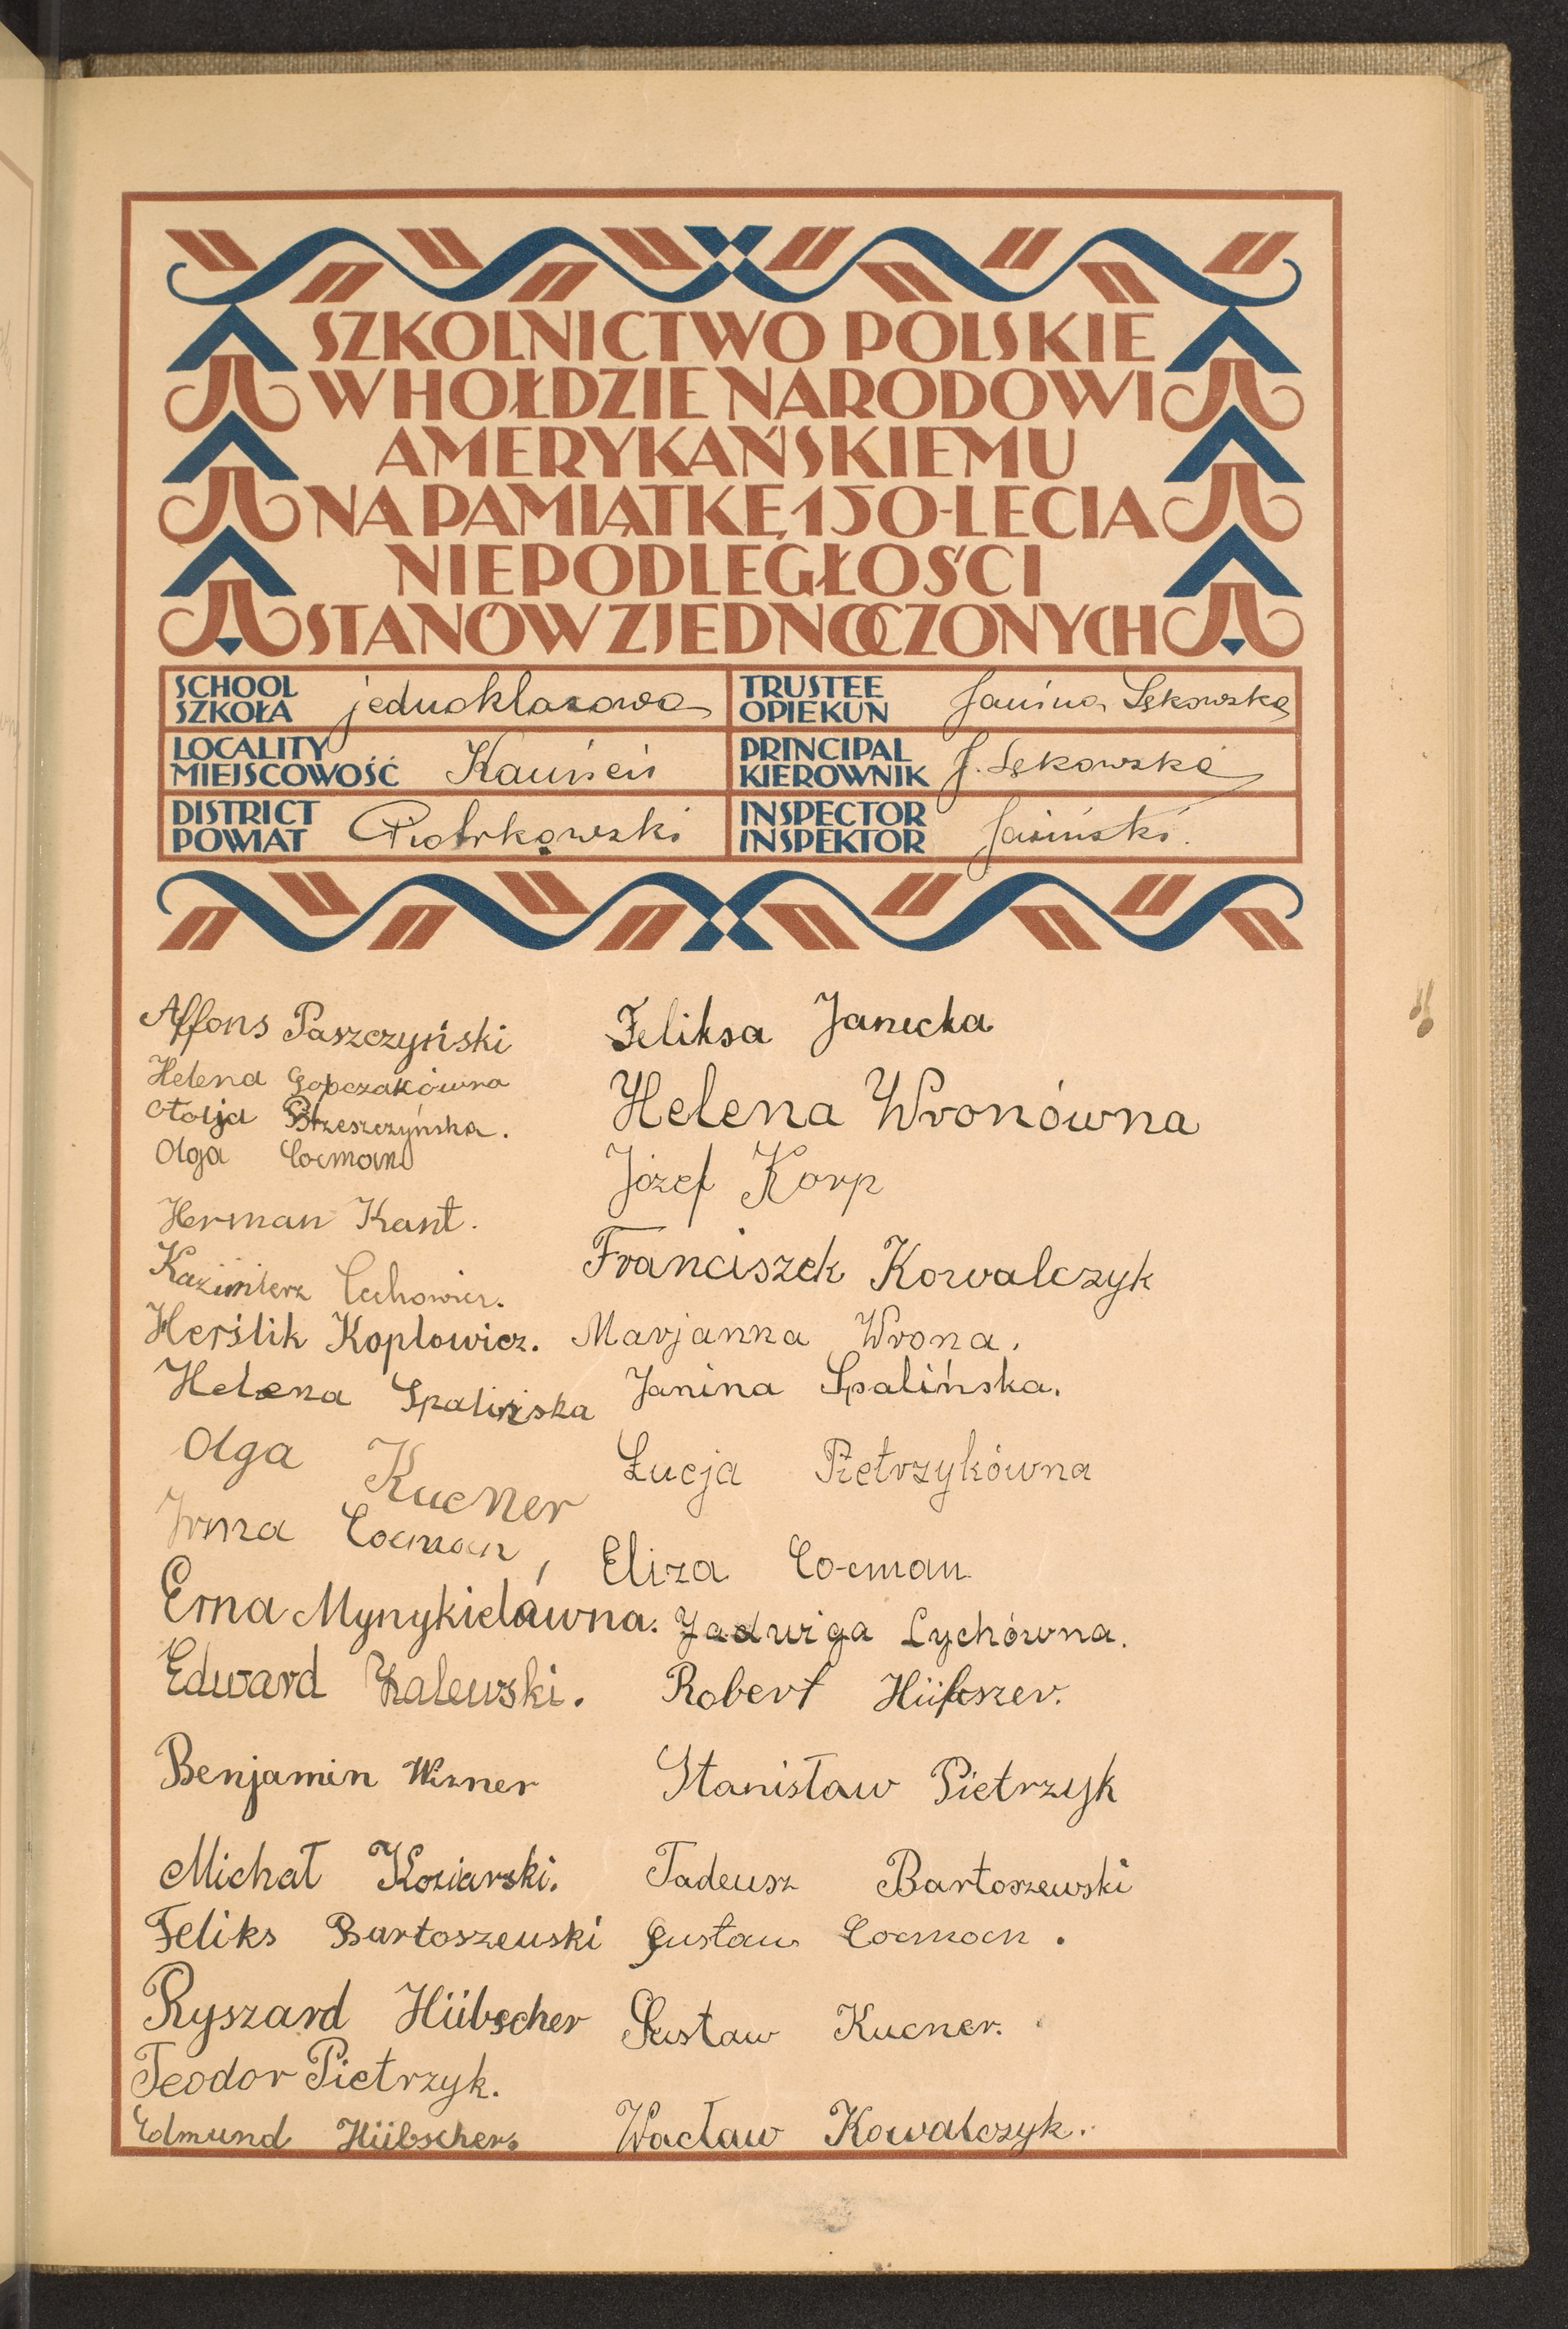 SZKOLNICTWO POLSKIE
W HOŁDZIE NARODOWI
AMERYKAŃSKIEMU
NA PAMIĄTKĘ 150-LECIA
NIEPODLEGŁOŚCI
STANÓW ZJEDNOCZONYCH
SCHOOL
SZKOŁA jednoklasowa
TRUSTEE
OPIEKUN Janina Sękowska
LOCALITY
MIEJSCOWOŚĆ Kamień
PRINCIPAL
KIEROWNIK J. Sękowska
DISTRICT
POWIAT Piotrkowski
INSPECTOR
INSPEKTOR Jasiński.
Affons Paszczyński
Helena Gopczakówna
Otolja Brzeszczyńska.
Olga Cocman
Herman Kant.
Kazimierz Cechowicz.
Herślik Koplowicz.
Helena Spalińska
Olga Kucner
Irma Cocman,
Erna Mynykielówna.
Edward Zalewski.
Benjamin Wizner
Michał Koziarski.
Feliks Bartoszewski
Ryszard Hübscher
Teodor Pietrzyk.
Edmund Hübscher.
Feliksa Janicka
Helena Wronówna
Józef Korp
Franciszek Kowalczyk
Marjanna Wrona.
Janina Spalińska.
Łucja Pietrzykówna
Eliza Cocman
Jadwiga Lychówna.
Robert Hübszer.
Stanisław Pietrzyk
Tadeusz Bartoszewski
Gustaw Cocman.
Gustaw Kucner.
Wacław Kowalczyk.